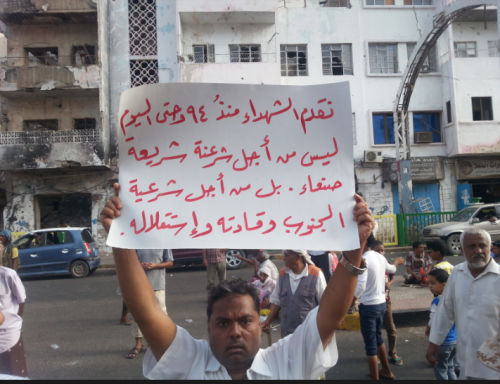 نقدم الشهداء منذُ ٩٤ وحتى اليوم
ليس من أجل شرعنة شريعه
صنعاء . بل من أجل شرعية
الجنوب وقادته وإستقلاله .